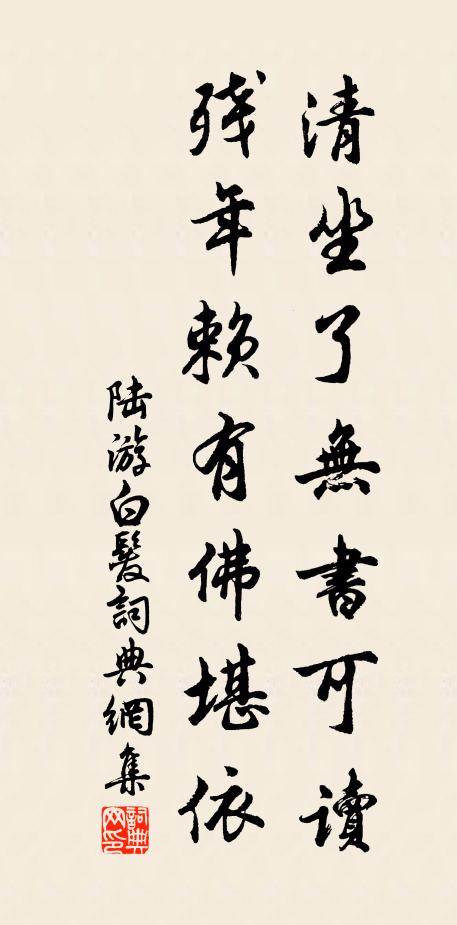 清坐了無書可讀
殘年賴有佛堪依
陆游白髮詞典網集
詞典网印